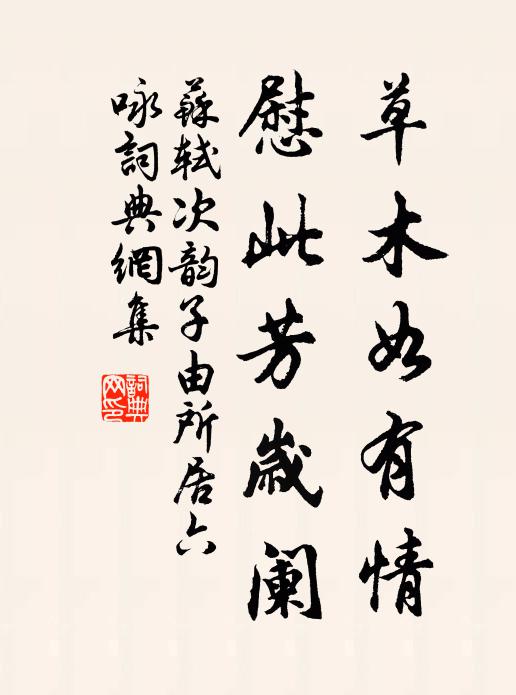 草木如有情
慰此芳歲闌
蘇軾次韵子由所居六
咏詞典網集
詞典
网印